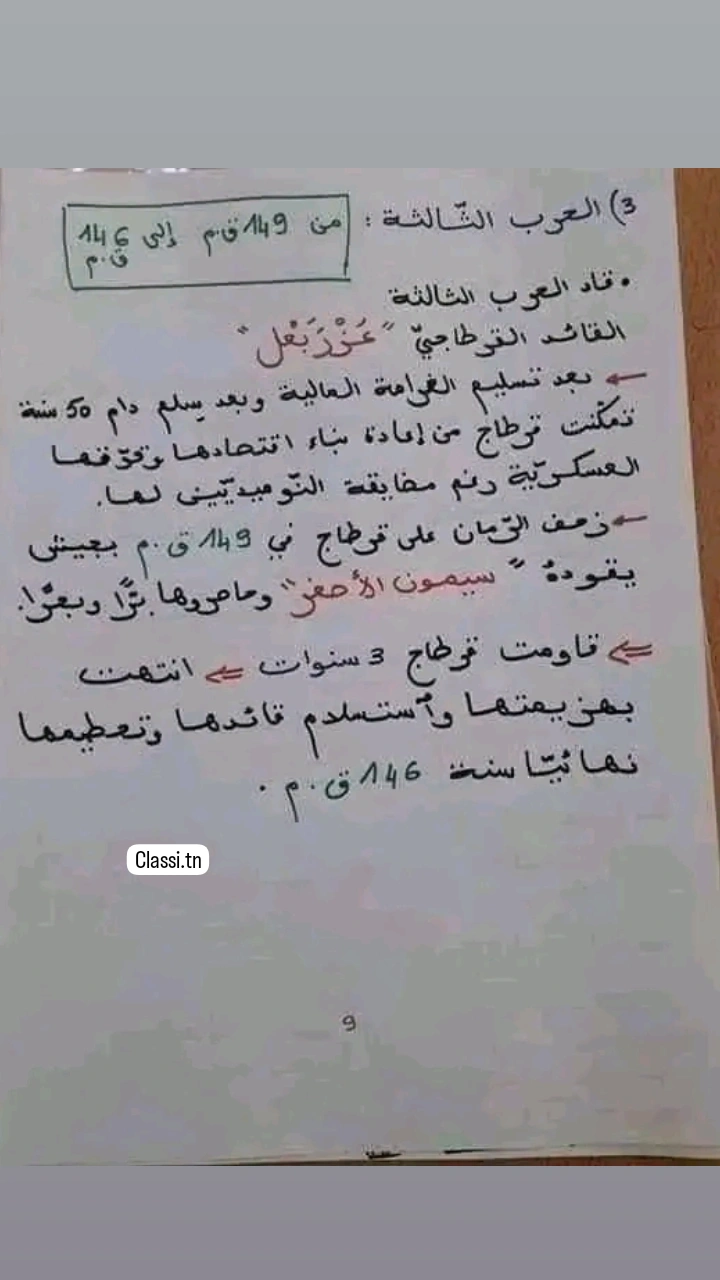 3) الحرب الثّالثة : من 149 ق.م إلى 146 ق.م
• قاد الحرب الثالثة
القائد القرطاجيّ "عَزْرَبَعْل"
← بعد تسليم الغرامة المالية وبعد سلم دام 50 سنة
تمكّنت قرطاج من إعادة بناء اقتصادها وقوّتها
العسكريّة رغم مضايقة النّوميديّين لها.
← زحف الرّمان على قرطاج في 149 ق.م بجيش
يقوده "سيبيون الأصغر" وحاصروها برًّا وبحرًا.
⇐ قاومت قرطاج 3 سنوات ⇐ انتهت
بهزيمتها وٱستسلام قائدها وتحطيمها
نهائيّا سنة 146 ق.م.
Classi.tn
9